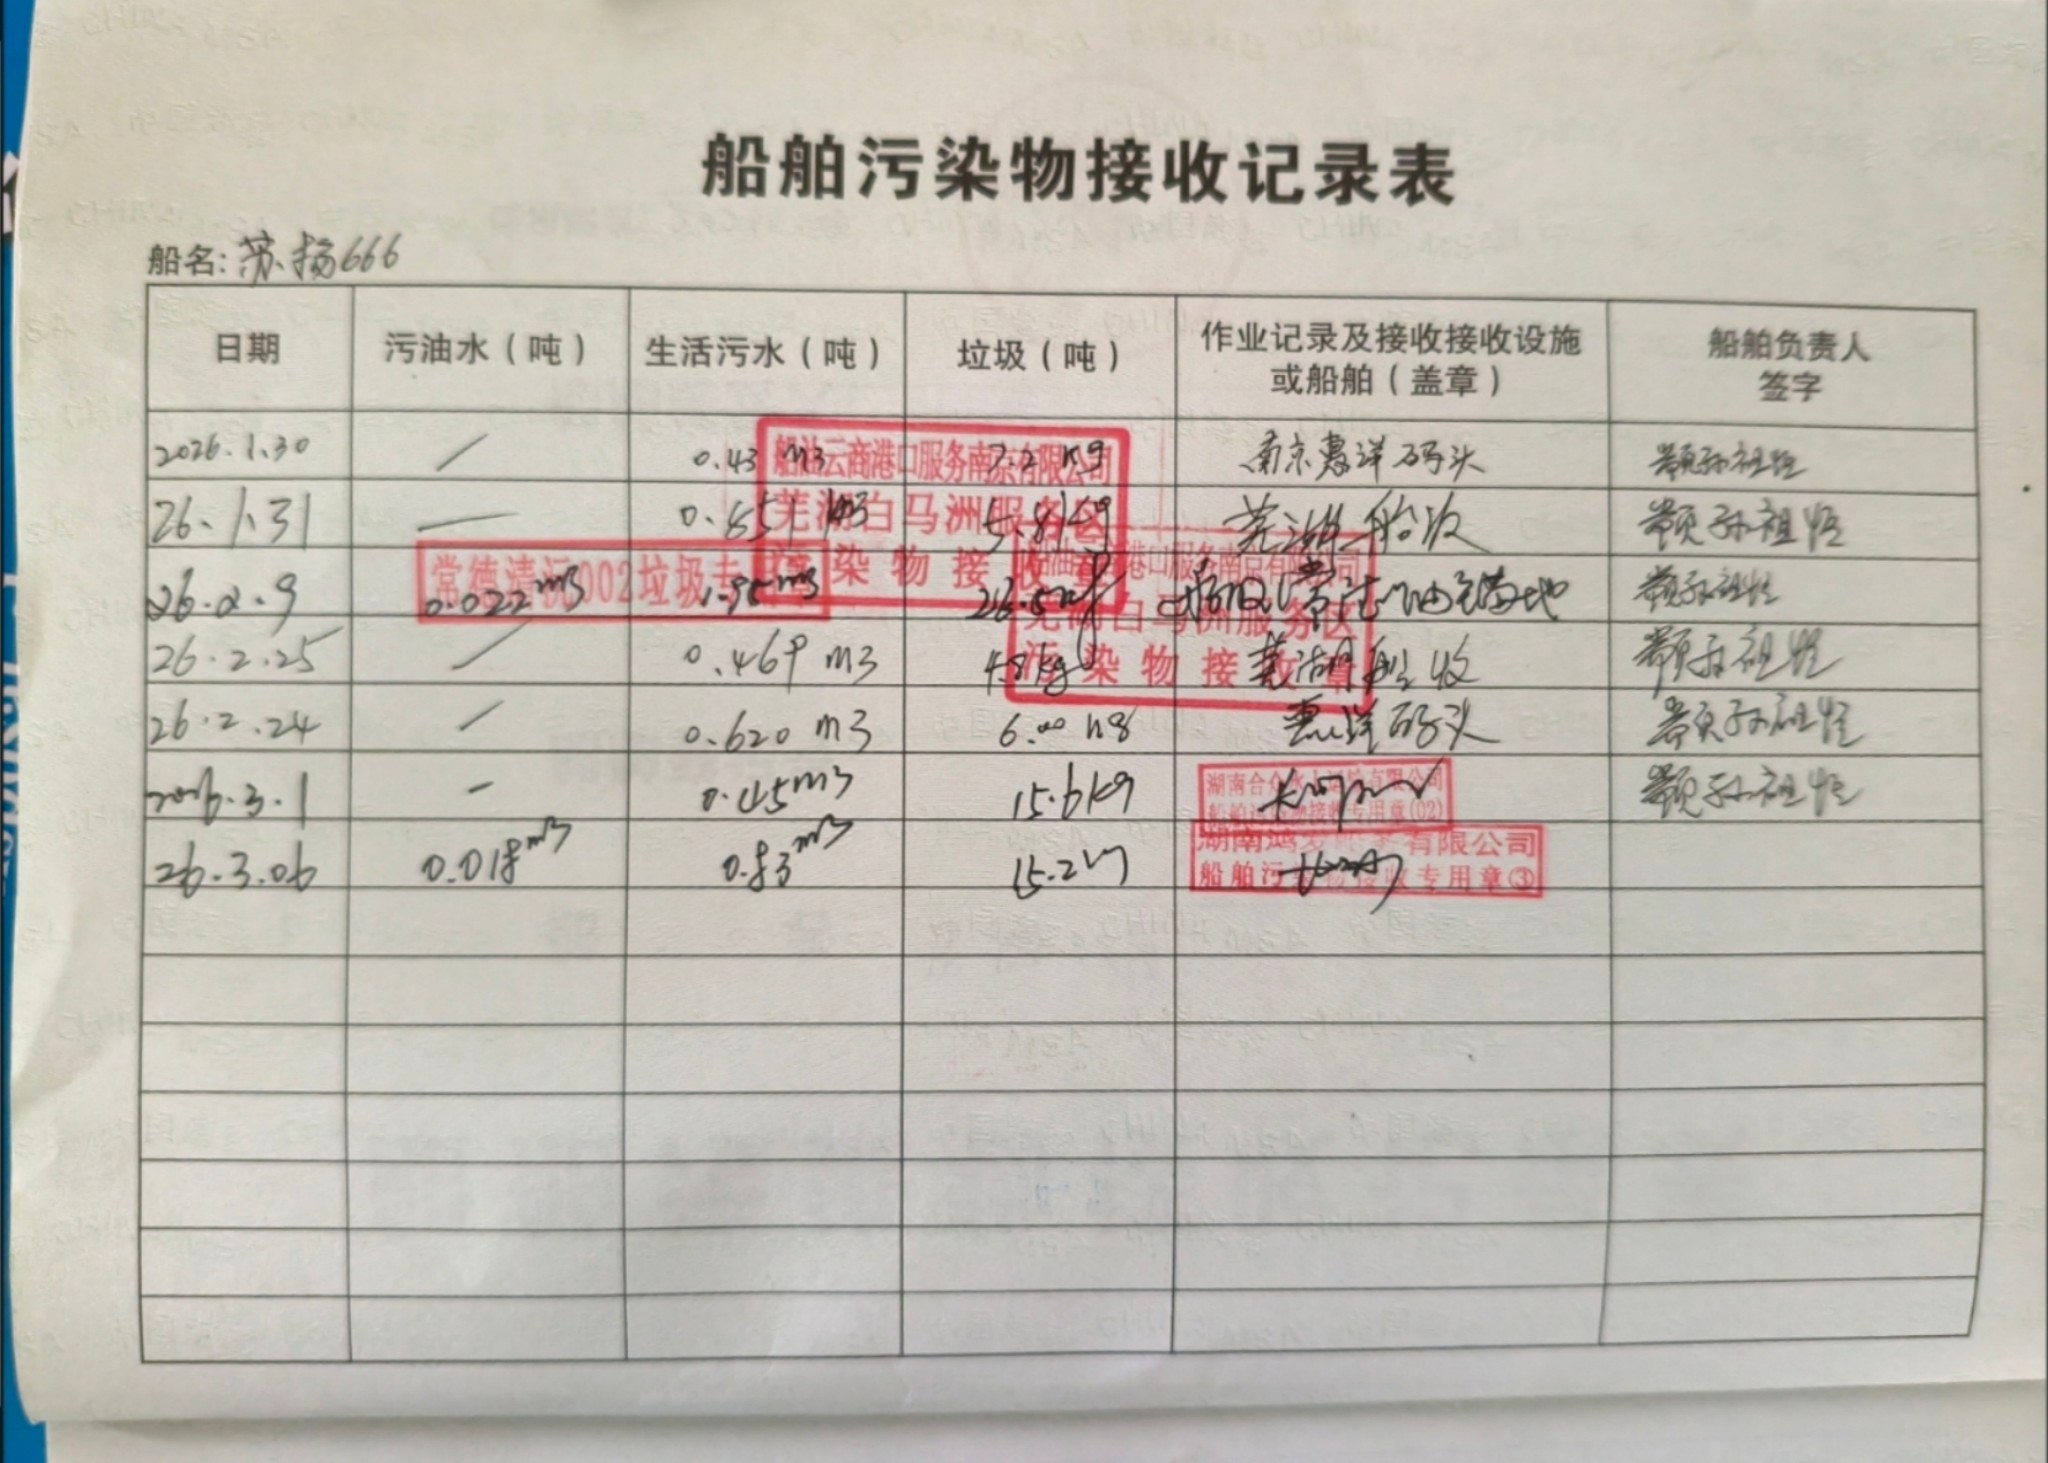 船舶污染物接收记录表
船名:苏扬666
日期 污油水(吨) 生活污水(吨) 垃圾(吨) 作业记录及接收接收设施或船舶(盖章) 船舶负责人签字
2026.1.30 / 0.43 m3 7.2 kg 南京惠洋码头
26.1.31 — 0.851 m3 5.8kg 芜湖船收
26.2.9 0.022m3 1.95m3 26.5kg
26.2.25 / 0.469 m3 4.8kg 芜湖船收
26.2.24 / 0.620 m3 6.00 kg 惠洋码头
2026.3.1 - 0.45m3 15.6kg
26.3.06 0.018m3 0.83m3 15.2
船油云商港口服务南京有限公司
芜湖白马洲服务区
污染物接收章
常德清污002垃圾专
港口服务南京有限公司
芜湖白马洲服务区
污染物接收章
湖南合众水上运输有限公司
船舶污染物接收专用章(02)
湖南鸿 有限公司
船舶污染物接收专用章③